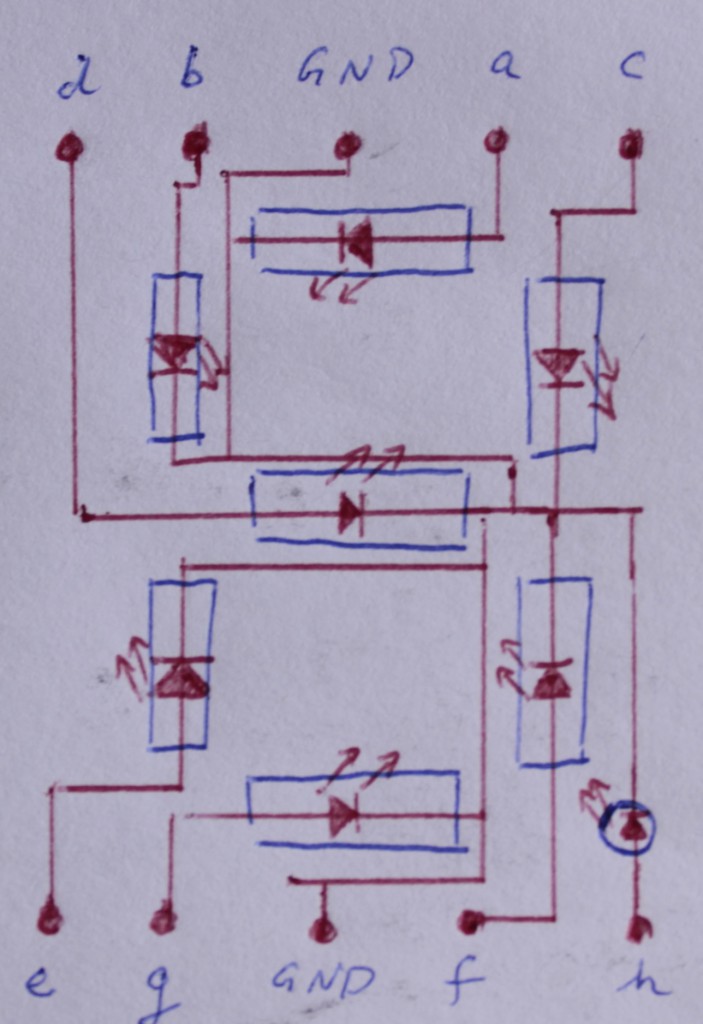 d b GND a c
e g GND f h